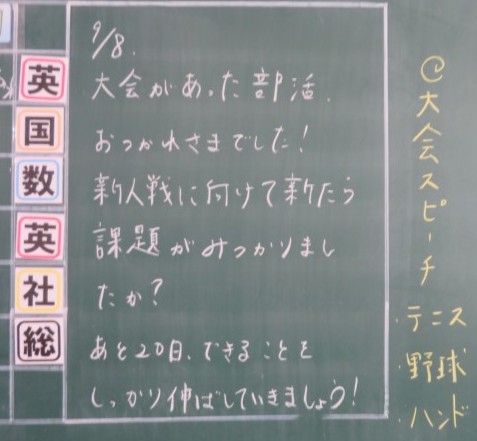 英
国
数
英
社
総
9/8.
大会があった部活、
おつかれさまでした！
新人戦に向けて新たな
課題がみつかりまし
たか？
あと20日、できることを
しっかり伸ばしていきましょう！
@大会スピーチ
・テニス
・野球
・ハンド